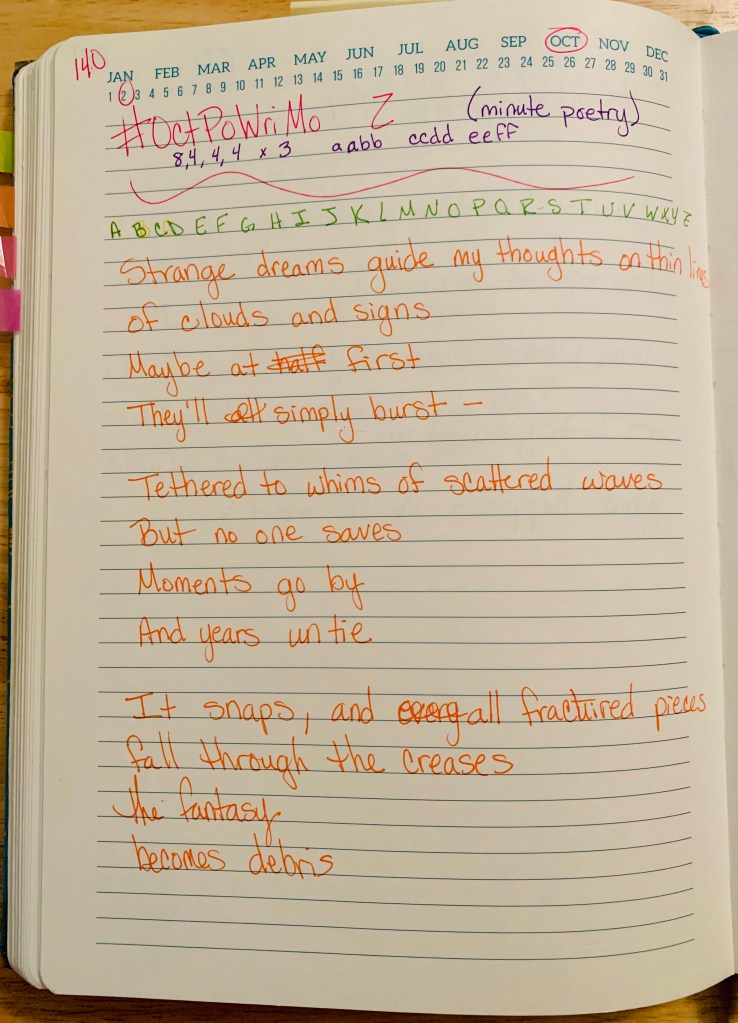 140
JAN FEB MAR APR MAY JUN JUL AUG SEP OCT NOV DEC
1 2 3 4 5 6 7 8 9 10 11 12 13 14 15 16 17 18 19 20 21 22 23 24 25 26 27 28 29 30 31
#OctPoWriMo 2 (minute poetry)
8,4,4,4 x 3 aabb ccdd eeff
A B C D E F G H I J K L M N O P Q R S T U V W X Y Z
Strange dreams guide my thoughts on thin lines
of clouds and signs
Maybe at half first
They'll all simply burst —
Tethered to whims of scattered waves
But no one saves
Moments go by
And years untie
It snaps, and every all fractured pieces
fall through the creases
the fantasy
becomes debris